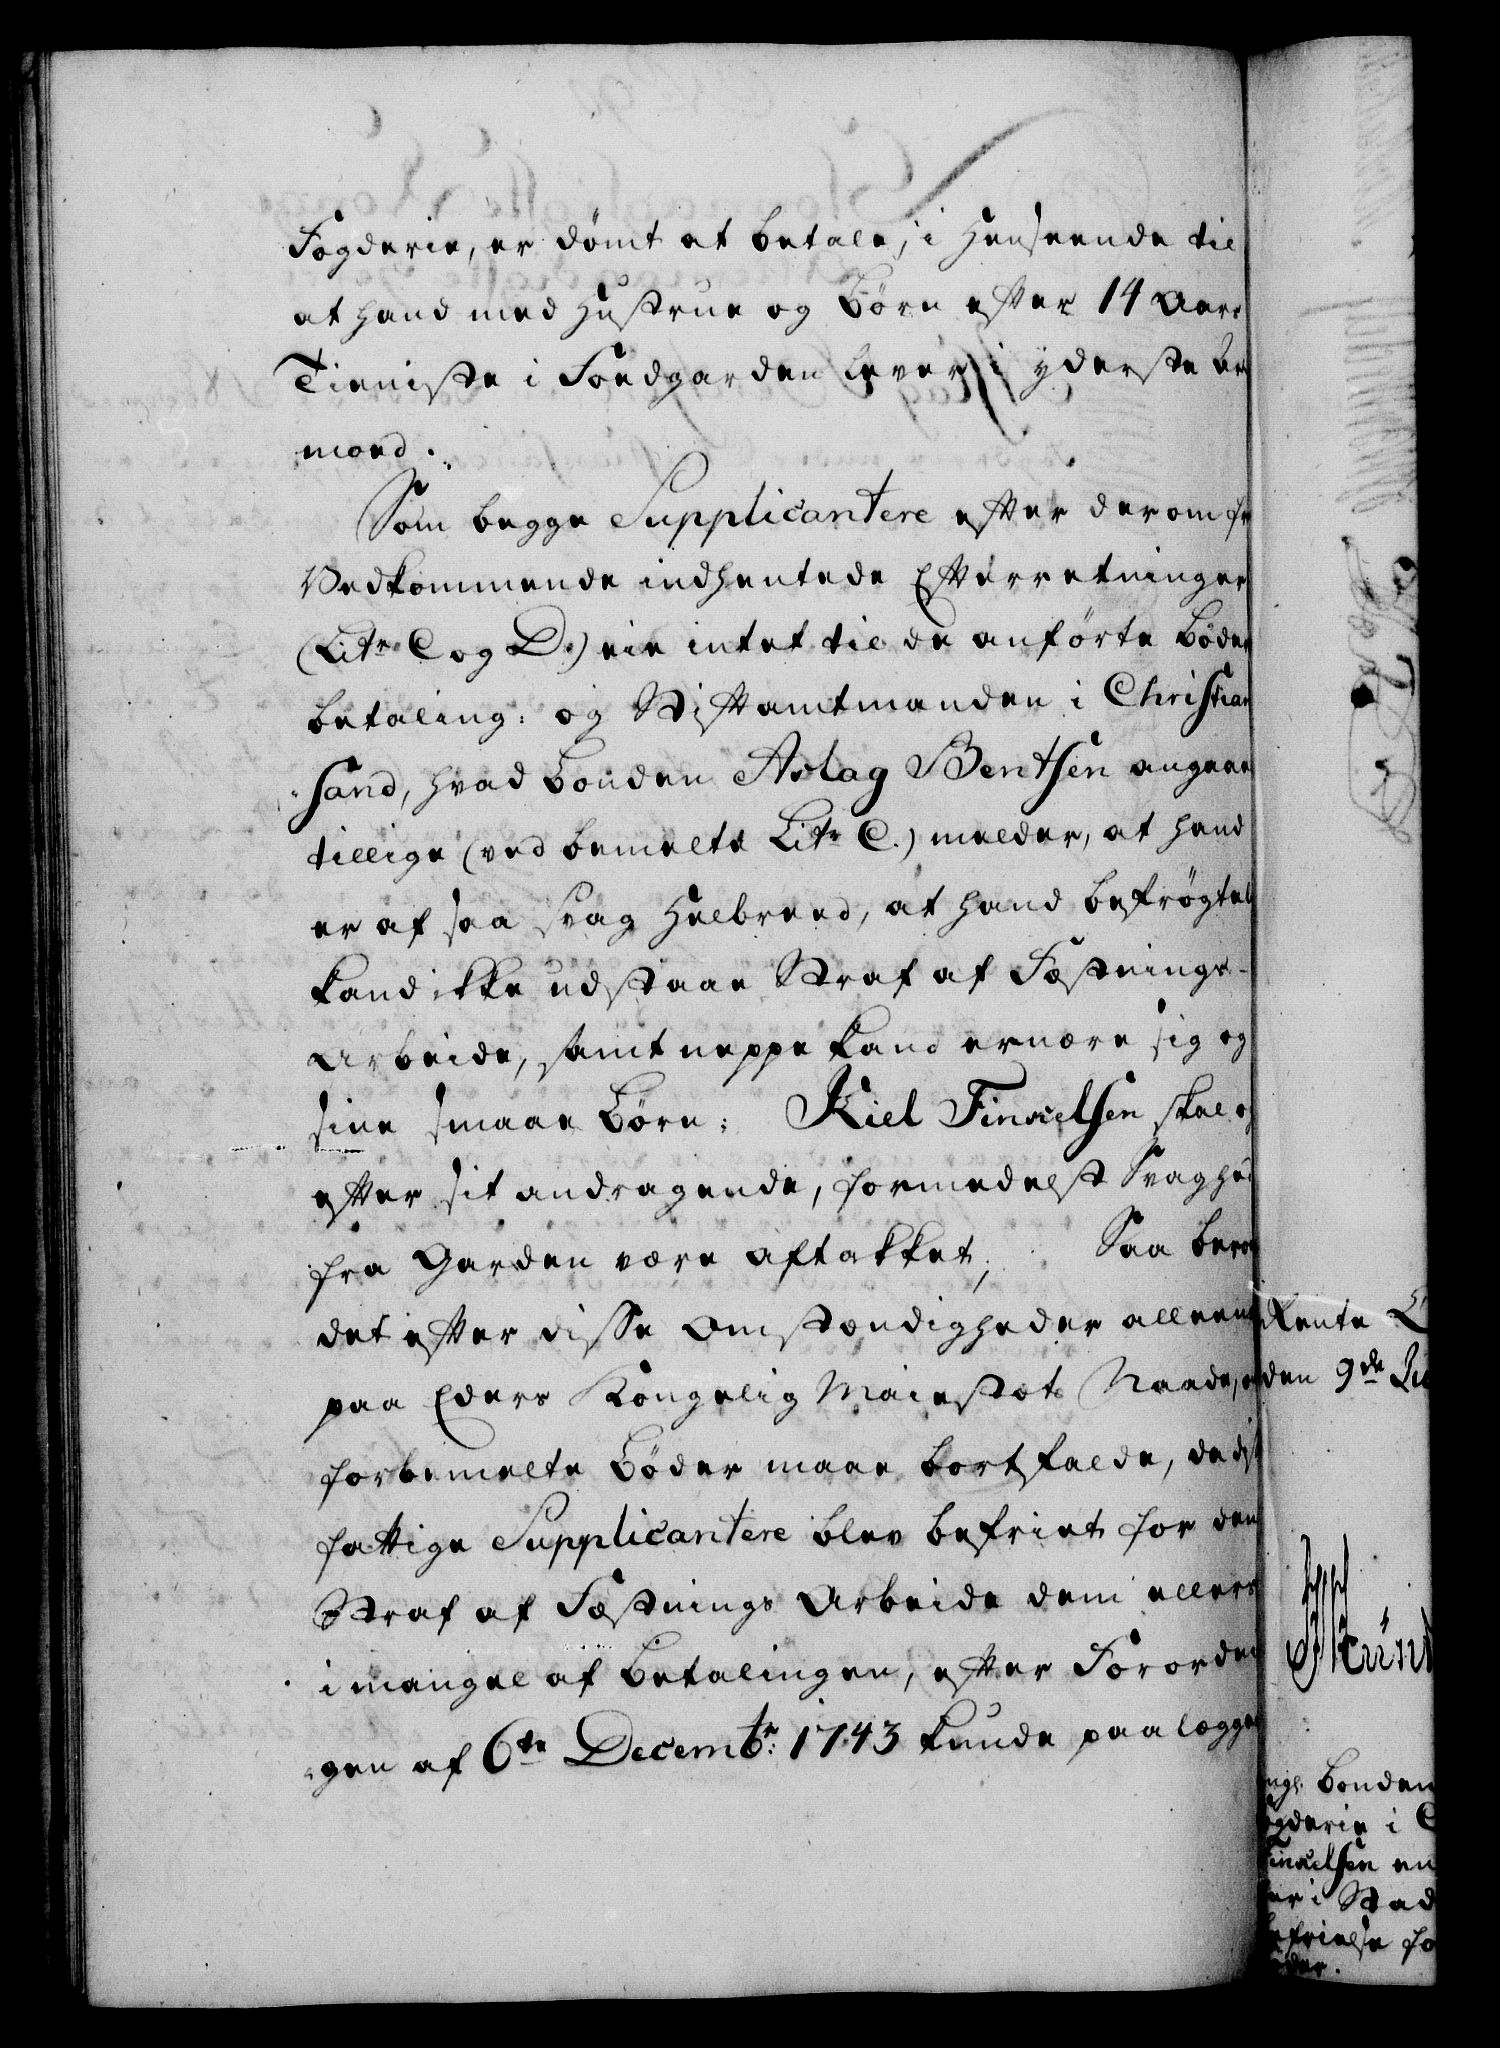 Fogderie, er dömt at betale, i Henseende til
at hand med Hustrue og Börn efter 14 Aars
Tieniste i Foedgarden lever i yderste Ar-
moed.
Som begge Supplicantere efter derom fra
Vedkommende indhentede Efterretninger
(Litr. C og D.) eie intet til de anförte Böders
betaling: og Stiftamtmanden i Christian
sand, hvad Bonden Aslag Bentsen angaaer
tillige (ved bemelte Litr. C.) melder, at hand
er af saa svag Helbreed, at hand befrögtel
kand ikke udstaae Straf af Fæstnings-
Arbeide, samt neppe kand ernære sig og
sine smaae Börn; Kiel Finxelsen skal og
efter sit andragende, formedelst Svaghed
fra Garden være aftakket; Saa beroer
det efter disse Omstændigheder alleene
paa Eders Kongelig Maiestæts Naade, om
forbemelte Böder maae bortfalde, de
fattige Supplicantere blev befriet for den
Straf af Fæstnings Arbeide dem ellers
i mangel af Betalingen, efter Forordnin
gen af 6te Decembr: 1743 kunde paalægges
Rente
den 9de
Bonden
Fogderie i
Finxelsen en
i Stad
befrielse fo